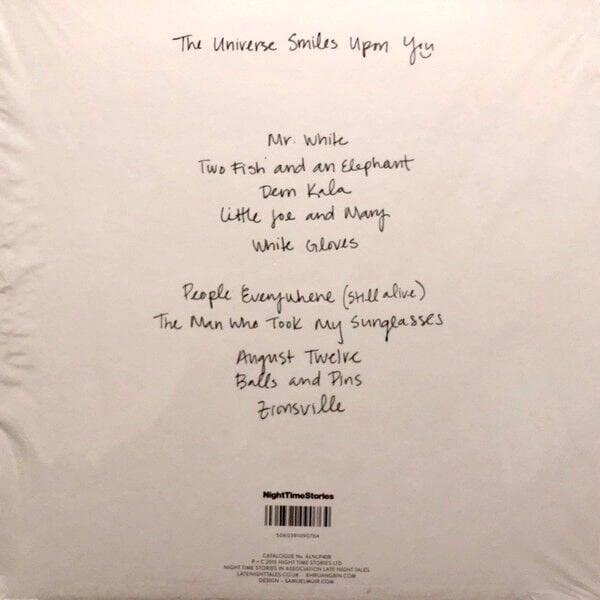 The Universe Smiles Upon You
Mr. White
Two Fish and an Elephant
Dern Kala
Little Joe and Mary
White Gloves
People Everywhere (Still alive)
The Man Who Took My Sunglasses
August Twelve
Balls and Pins
Zionsville
NightTimeStories
5060391090764
CATALOGUE No. ALNLP40R
P + C 2015 NIGHT TIME STORIES LTD
NIGHT TIME STORIES IN ASSOCIATION LATE NIGHT TALES
LATENIGHTTALES.CO.UK KHRUANGBIN.COM
DESIGN - SAMUELMUIR.COM